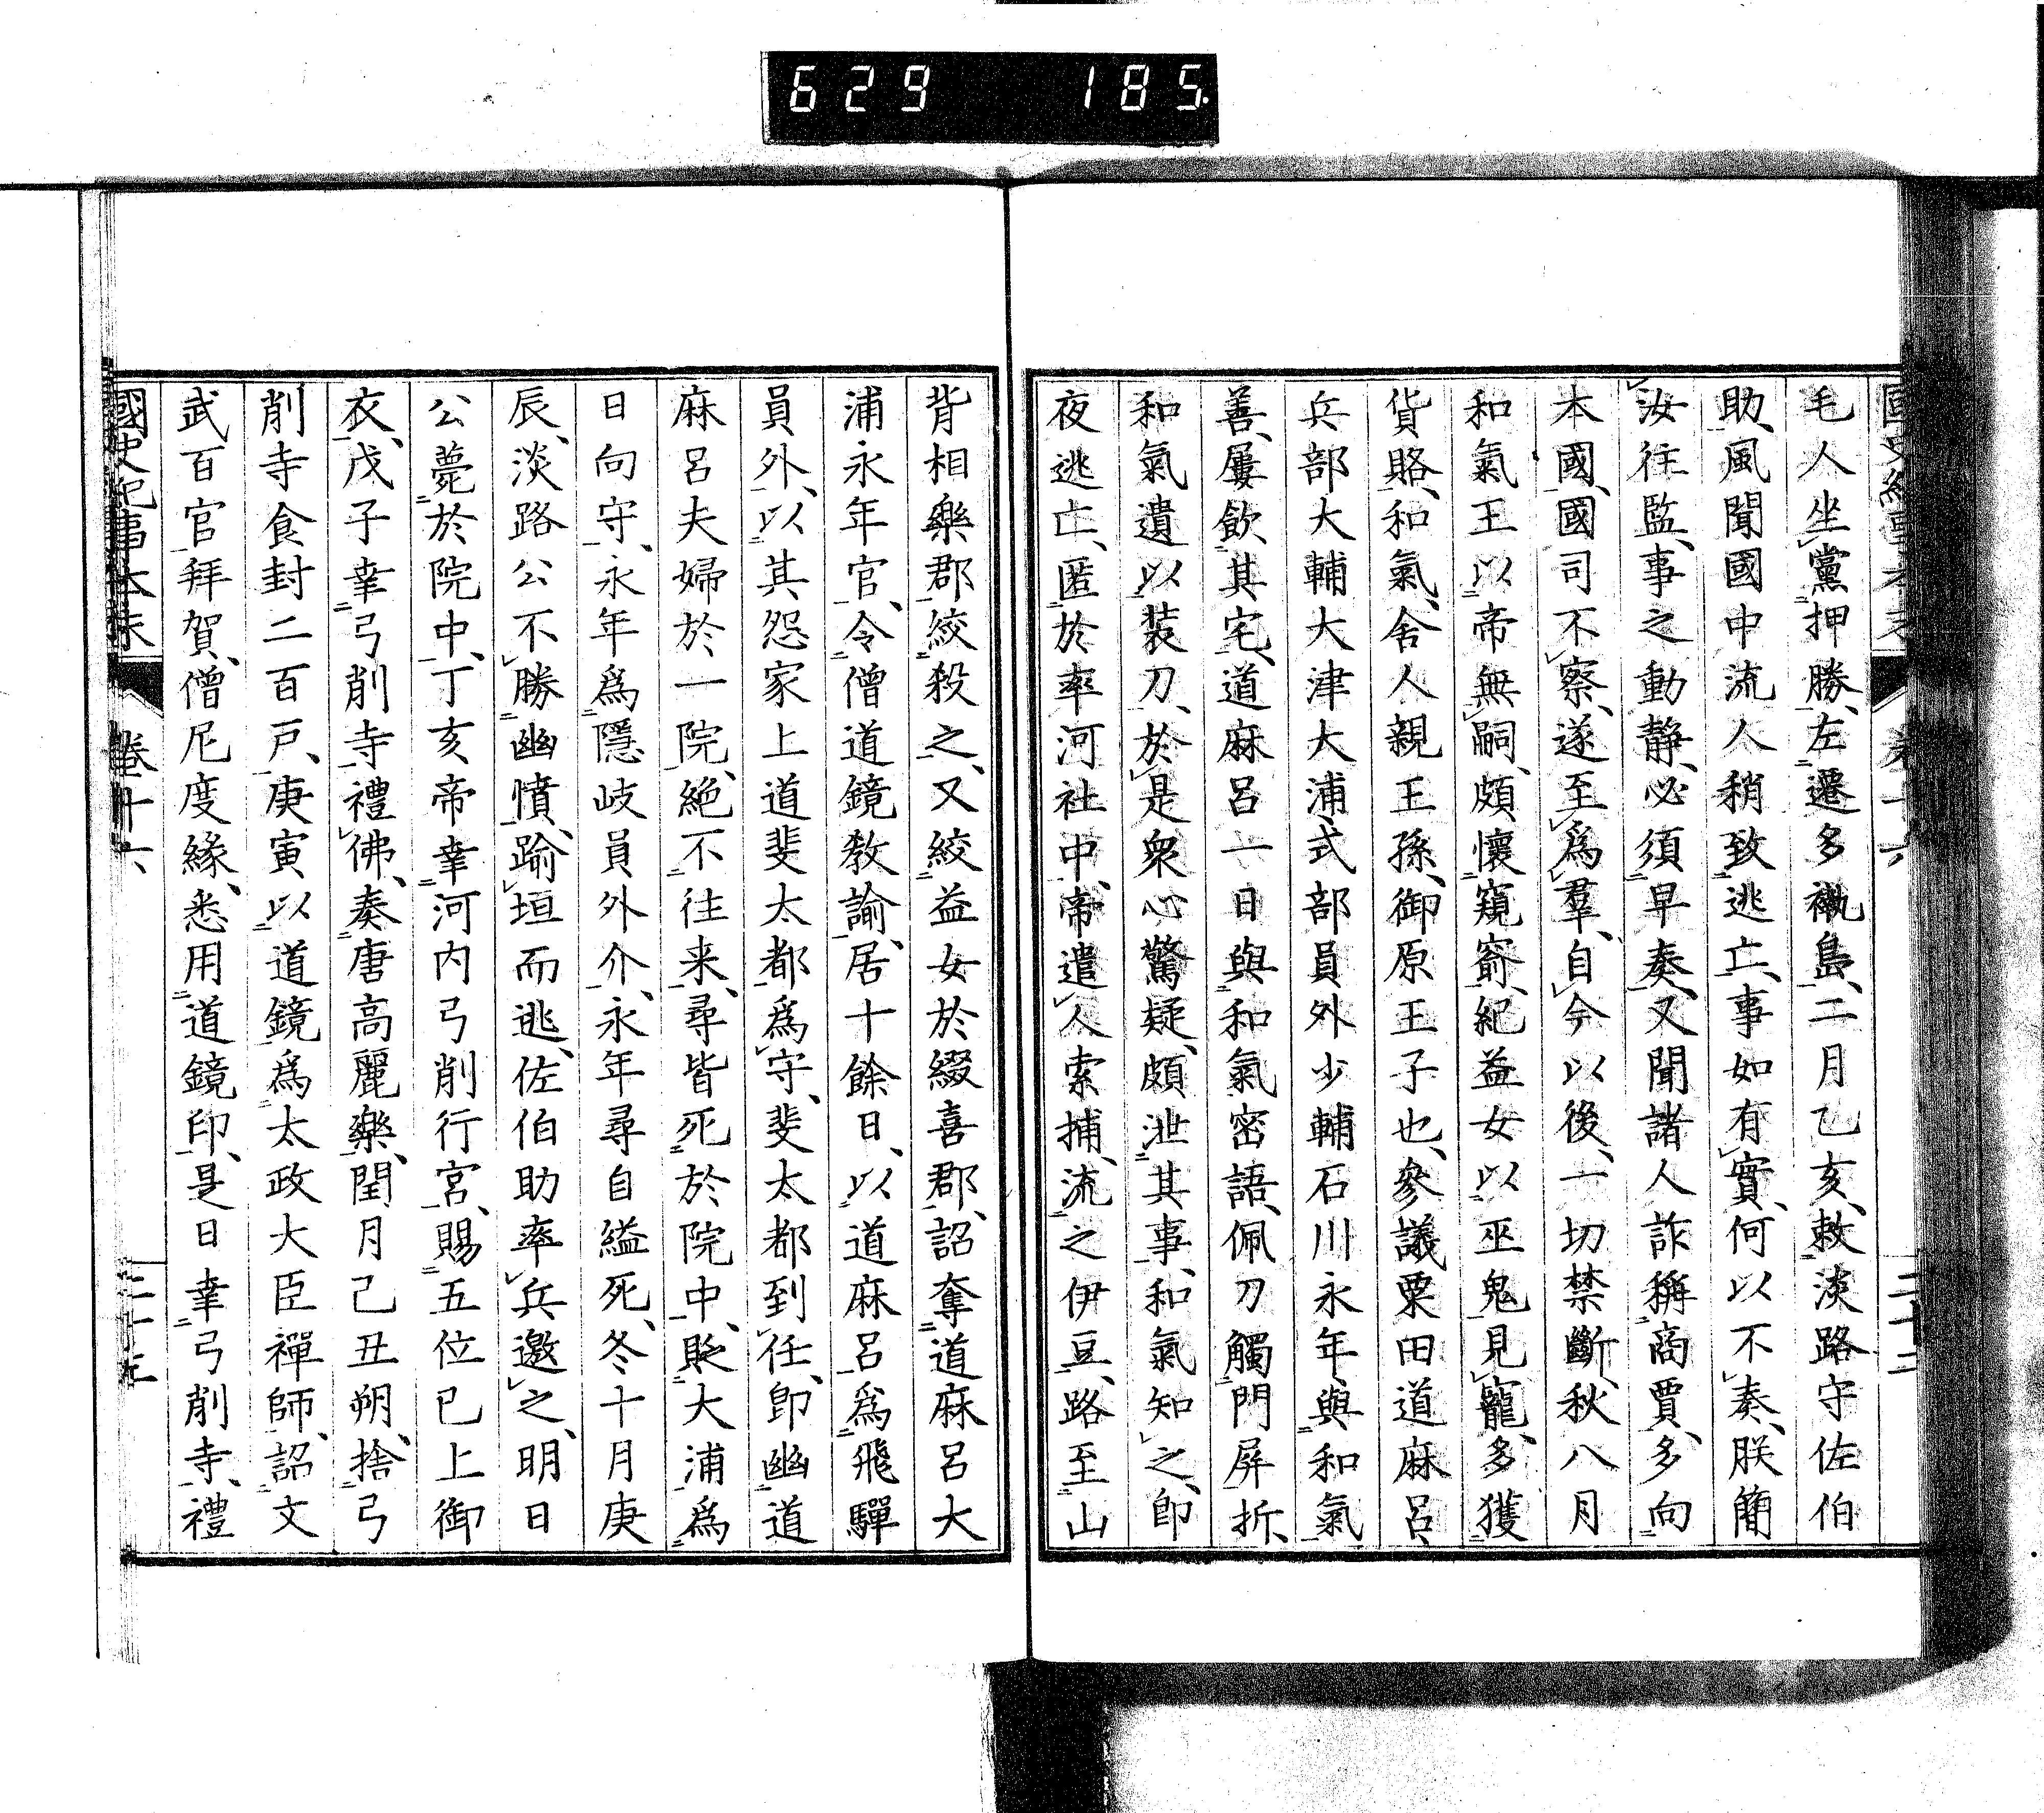 629 185
毛人坐黨押勝、左遷多褹島、二月乙亥、敕淡路守佐伯
助、風聞國中流人稍致逃亡、事如有實、何以不奏、朕簡
汝往監、事之動静、必須早奏、又聞諸人詐稱商賈、多向
本國、國司不察、遂至爲羣、自今以後、一切禁斷、秋八月
和氣王以帝無嗣、頗懷窺窬、紀益女以巫鬼見寵、多獲
貨賂、和氣、舍人親王孫、御原王子也、參議粟田道麻呂、
兵部大輔大津大浦、式部員外少輔石川永年、與和氣
善、屢飲其宅、道麻呂一日與和氣密語、佩刀觸門屏折、
和氣遺以装刀、於是衆心驚疑、頗泄其事、和氣知之、卽
夜逃亡、匿於率河社中、帝遣人索捕、流之伊豆、路至山
背相樂郡絞殺之、又絞益女於綴喜郡、詔奪道麻呂大
浦永年官、令僧道鏡敎諭、居十餘日、以道麻呂爲飛驒
員外、以其怨家上道斐太都爲守、斐太都到任、卽幽道
麻呂夫婦於一院、絶不往来、尋皆死於院中、貶大浦爲
日向守、永年爲隱岐員外介、永年尋自縊死、冬十月庚
辰、淡路公不勝幽憤、踰垣而逃、佐伯助率兵邀之、明日
公薨於院中、丁亥帝幸河内弓削行宮、賜五位已上御
衣、戊子幸弓削寺禮佛、奏唐高麗樂、閏月己丑朔、捨弓
削寺食封二百戸、庚寅以道鏡爲太政大臣禪師、詔文
武百官拜賀、僧尼度緣、悉用道鏡印、是日幸弓削寺、禮
國史紀事本末 卷十六